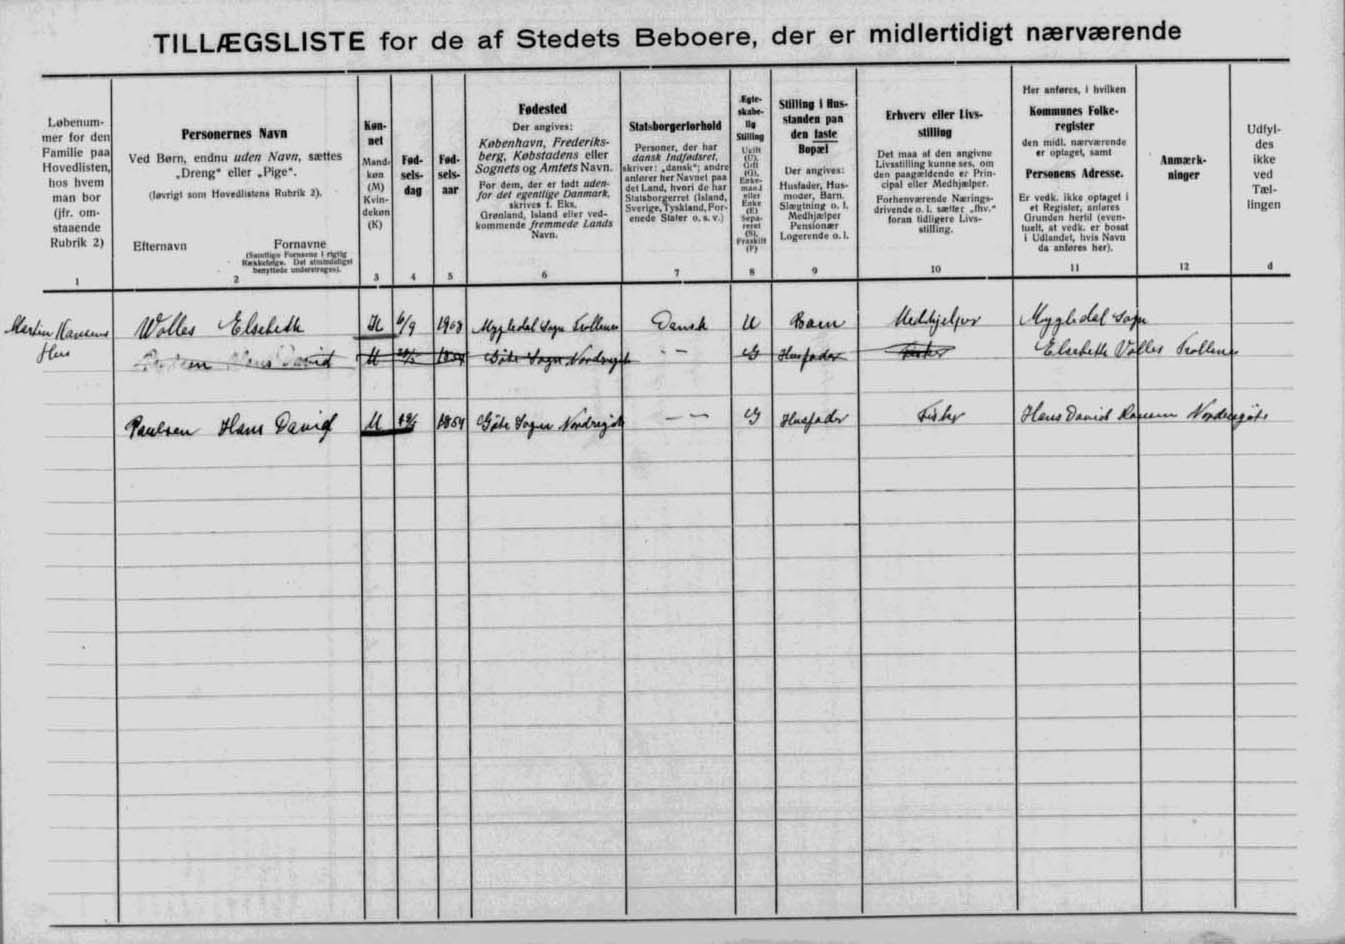 TILLÆGSLISTE for de af Stedets Beboere, der er midlertidigt nærværende
Løbenum-
mer for den
Familie paa
Hovedlisten,
hos hvem
man bor
(jfr. om-
staaende
Rubrik 2)
1
Personernes Navn
Ved Børn, endnu uden Navn, sættes
„Dreng“ eller „Pige“.
(Iøvrigt som Hovedlistens Rubrik 2).
Efternavn Fornavne
(Samtlige Fornavne i rigtig
Rækkefølge. Det almindeligst
benyttede understreges).
2
Køn-
net
Mand-
køn
(M)
Kvin-
dekøn
(K)
3
Fød-
sels-
dag
4
Fød-
sels-
aar
5
Fødested
Der angives:
København, Frederiks-
berg, Købstadens eller
Sognets og Amtets Navn.
For dem, der er født uden-
for det egentlige Danmark,
skrives f. Eks.
Grønland, Island eller ved-
kommende fremmede Lands
Navn.
6
Statsborgerforhold
Personer, der har
dansk Indfødsret,
skriver: „dansk“; andre
anfører her Navnet paa
det Land, hvori de har
Statsborgerret (Island,
Sverige, Tyskland, For-
enede Stater o. s. v.)
7
Ægte-
skabe-
lig
Stilling
Ugift
(U),
Gift
(G),
Enke-
mand
eller
Enke
(E)
Sepa-
reret
(S),
Fraskilt
(F)
8
Stilling i Hus-
standen paa
den faste
Bopæl
Der angives:
Husfader, Hus-
moder, Barn.
Slægtning o. l.
Medhjælper
Pensionær
Logerende o. l.
9
Erhverv eller Livs-
stilling
Det maa af den angivne
Livsstilling kunne ses, om
den paagældende er Prin-
cipal eller Medhjælper.
Forhenværende Nærings-
drivende o. l. sætter „fhv.“
foran tidligere Livs-
stilling.
10
Her anføres, i hvilken
Kommunes Folke-
register
den midl. nærværende
er optaget, samt
Personens Adresse.
Er vedk. ikke optaget i
et Register, anføres
Grunden hertil (even-
tuelt, at vedk. er bosat
i Udlandet, hvis Navn
da anføres her).
11
Anmærk-
ninger
12
Udfyl-
des
ikke
ved
Tæl-
lingen
d
Martin Hansens Wolles Elsebeth K 6/9 1908 Mygledal Sogn Trollenes Dansk U Barn Medhjelper Mygledal Sogn
Hus Hans David M Göte Sogn Nordregöte — — G Husfader Fisker Elsebeth Volles Trollenes
Paulsen Hans David M 1854 Göte Sogn Nordregöte — — G Husfader Fisker Hans David Nordregöte